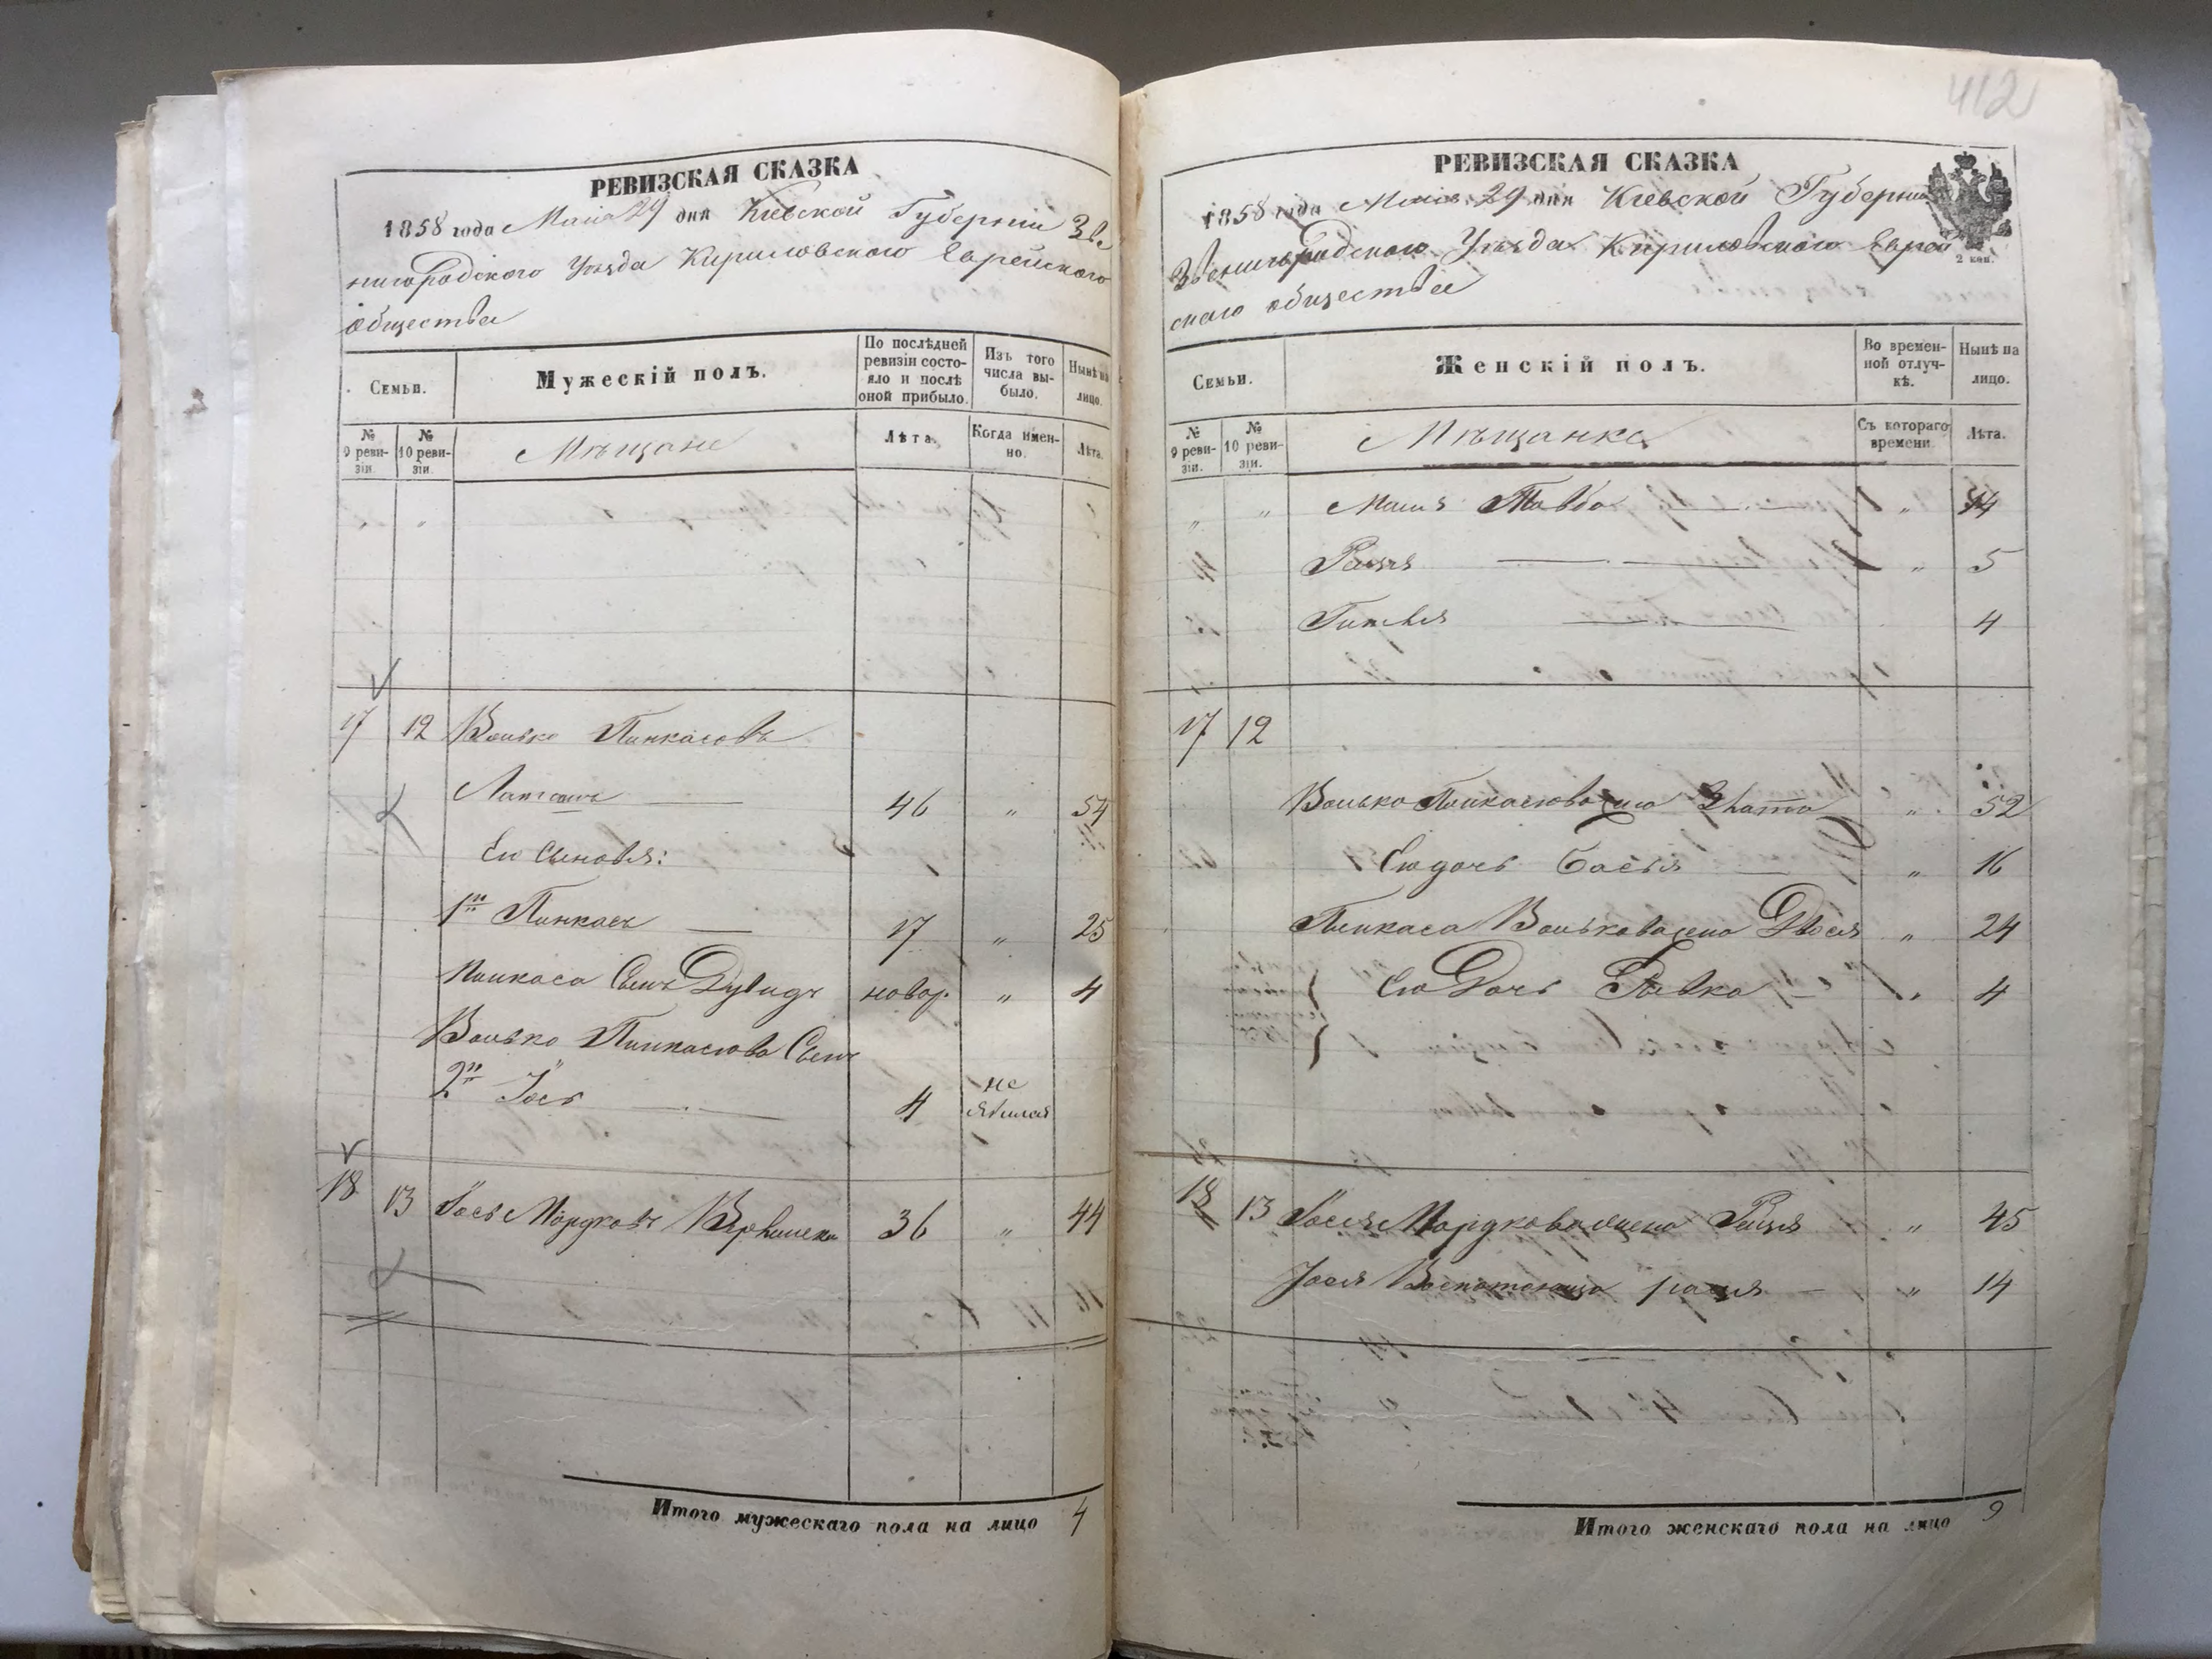 412
РЕВИЗСКАЯ СКАЗКА
1858 года Маія 29 дня Кіевской Губерніи Зве
нигородскаго Уѣзда Кириловскаго Еврейскаго
общества
Семьи.
Мужескій полъ.
По послѣдней ревизіи состояло и послѣ оной прибыло.
Изъ того числа выбыло.
Нынѣ на лицо.
№ 9 ревизіи.
№ 10 ревизіи.
Мѣщане
Лѣта.
Когда именно.
Лѣта.
" "
17 12 Волько Пинкасовъ
46 " 54
Его Сыновья:
1й Пинкасъ — 17 " 25
Пинкаса Сынъ Дувидъ новор. " 4
Волько Пинкасова Сынъ
2й Іось — 4 не явился
18 13 Іось Мордковъ 36 " 44
Итого мужескаго пола на лицо 4
РЕВИЗСКАЯ СКАЗКА
1858 года Маія 29 дня Кіевской Губерніи
Звенигородскаго Уѣзда Кириловскаго Еврей
скаго общества
2 коп.
Семьи.
Женскій полъ.
Во временной отлучкѣ.
Нынѣ на лицо.
№ 9 ревизіи.
№ 10 ревизіи.
Мѣщанка
Съ котораго времени.
Лѣта.
" " Товба — " 14
— " 5
— 4
17 12
Волько Пинкасова жена " 52
Его дочь Бася — " 16
Пинкаса Волькова жена Двося " 24
Его Дочь Ривка — " 4
18 13 Іося Мордкова жена " 45
Іося — " 14
Итого женскаго пола на лицо 9